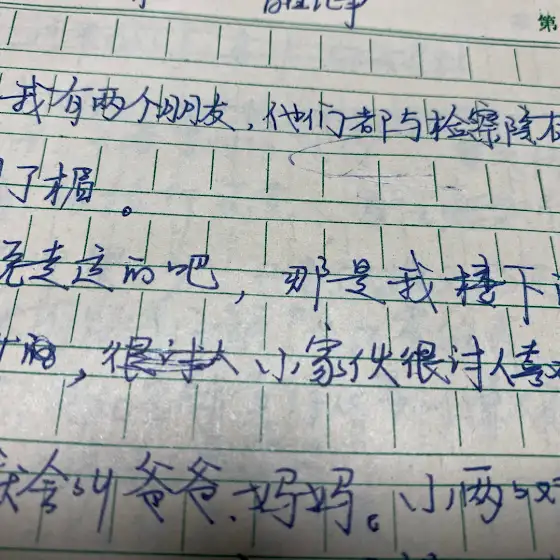 第
我有两个朋友，他们都与检察院
了楣。
走这的吧，那是我接下
，很讨人 小家伙很讨人喜
就会叫爸爸.妈妈。小两